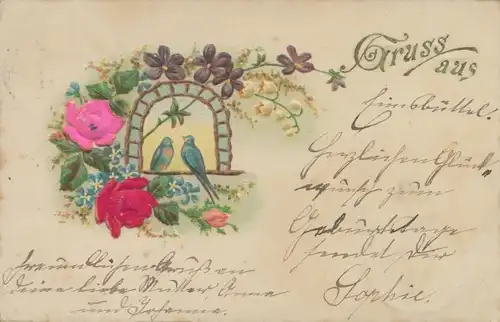 Gruss
aus
Eimsbüttel.
Herzlichen Glück-
wunsch zum
Geburtstage
sendet Dir
Sophie.
freundlichen Gruß an
deine liebe Mutter, Anna
und Johanna.